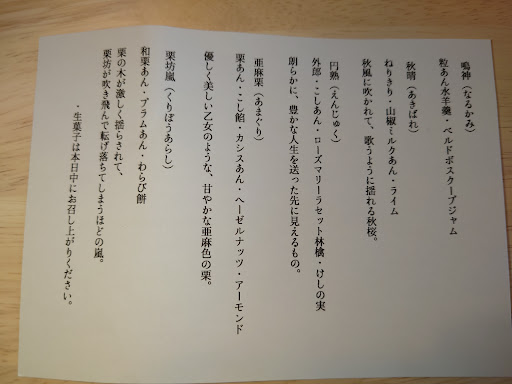 鳴神(なるかみ)
粒あん水羊羹・ベルドボスクープジャム
秋晴(あきばれ)
ねりきり・山椒ミルクあん・ライム
秋風に吹かれて、歌うように揺れる秋桜。
円熟(えんじゅく)
外郎・こしあん・ローズマリーラセット林檎・けしの実
朗らかに、豊かな人生を送った先に見えるもの。
亜麻栗(あまぐり)
栗あん・こし餡・カシスあん・ヘーゼルナッツ・アーモンド
優しく美しい乙女のような、甘やかな亜麻色の栗。
栗坊嵐(くりぼうあらし)
和栗あん・プラムあん・わらび餅
栗の木が激しく揺らされて、
栗坊が吹き飛んで転げ落ちてしまうほどの嵐。
・生菓子は本日中にお召し上がりください。